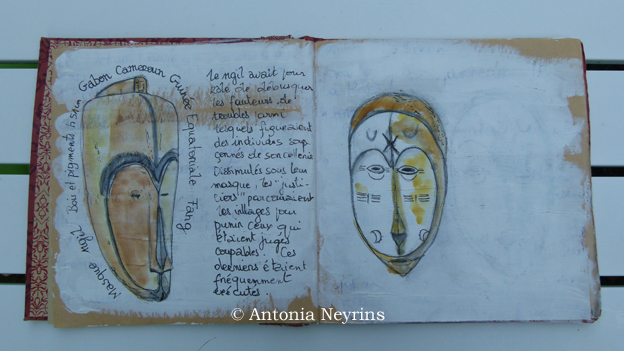 Masque ngil Bois et pigments H 59cm
Gabon Cameroun Guinée Equatoriale Fang
Le ngil avait pour
rôle de débusquer
les fauteurs de
troubles parmi
lesquels figuraient
des individus soup
çonnés de sorcellerie
Dissimulés sous leur
masque, les "justi-
ciers" parcouraient
les villages pour
punir ceux qui
étaient jugés
coupables. Ces
derniers étaient
fréquemment
exécutés.
© Antonia Neyrins